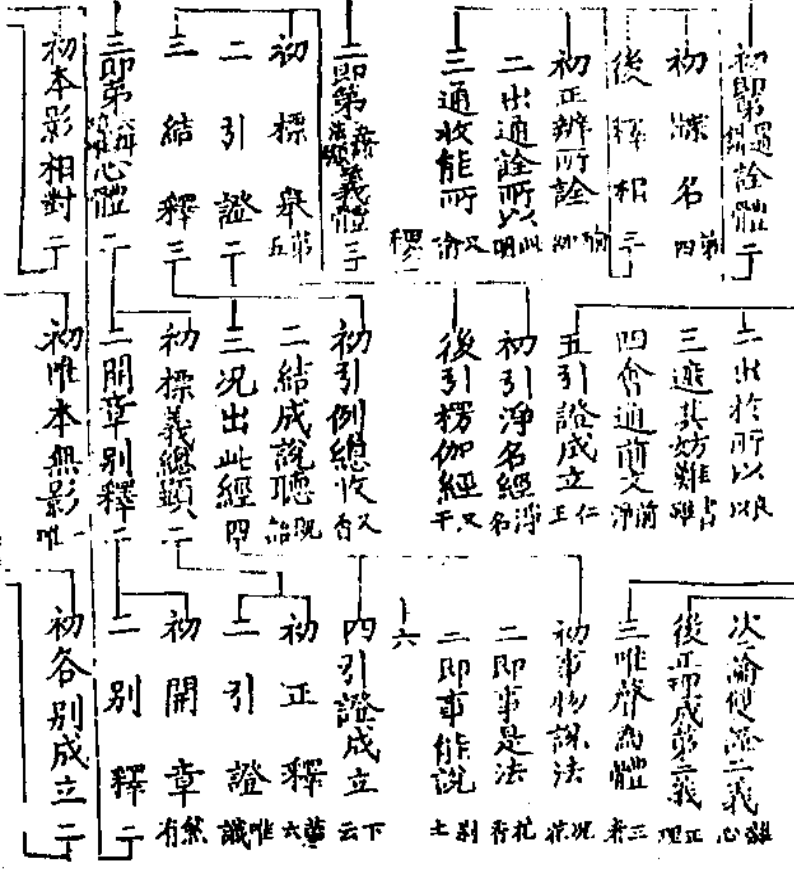 初即第四通詮體二
初牒名 第四
後釋相三
初正辨所詮
二出通詮所以 明此
三通收能所
二即第五義體三
初標舉 第五
二引證二
三結釋三
三即第六心體二
初本影相對二
二出於所以 以良
三遮其妨難
四會通前文
五引證成立 仁王
初引淨名經 淨名
後引楞伽經 又
初引例總收 又香
二結成說聽 說
三況出此經 四
初標義總顯二
二開章別釋二
初唯本無影 唯一
次論雙泯二義 心
後正成第二義 正
三唯聲為體
初事物說法 況
二即事是法 香
二即事能說 別
六
四引證成立 下云
初正釋 第六
二引證 唯識
初開章 然有
二別釋二
初各別成立二